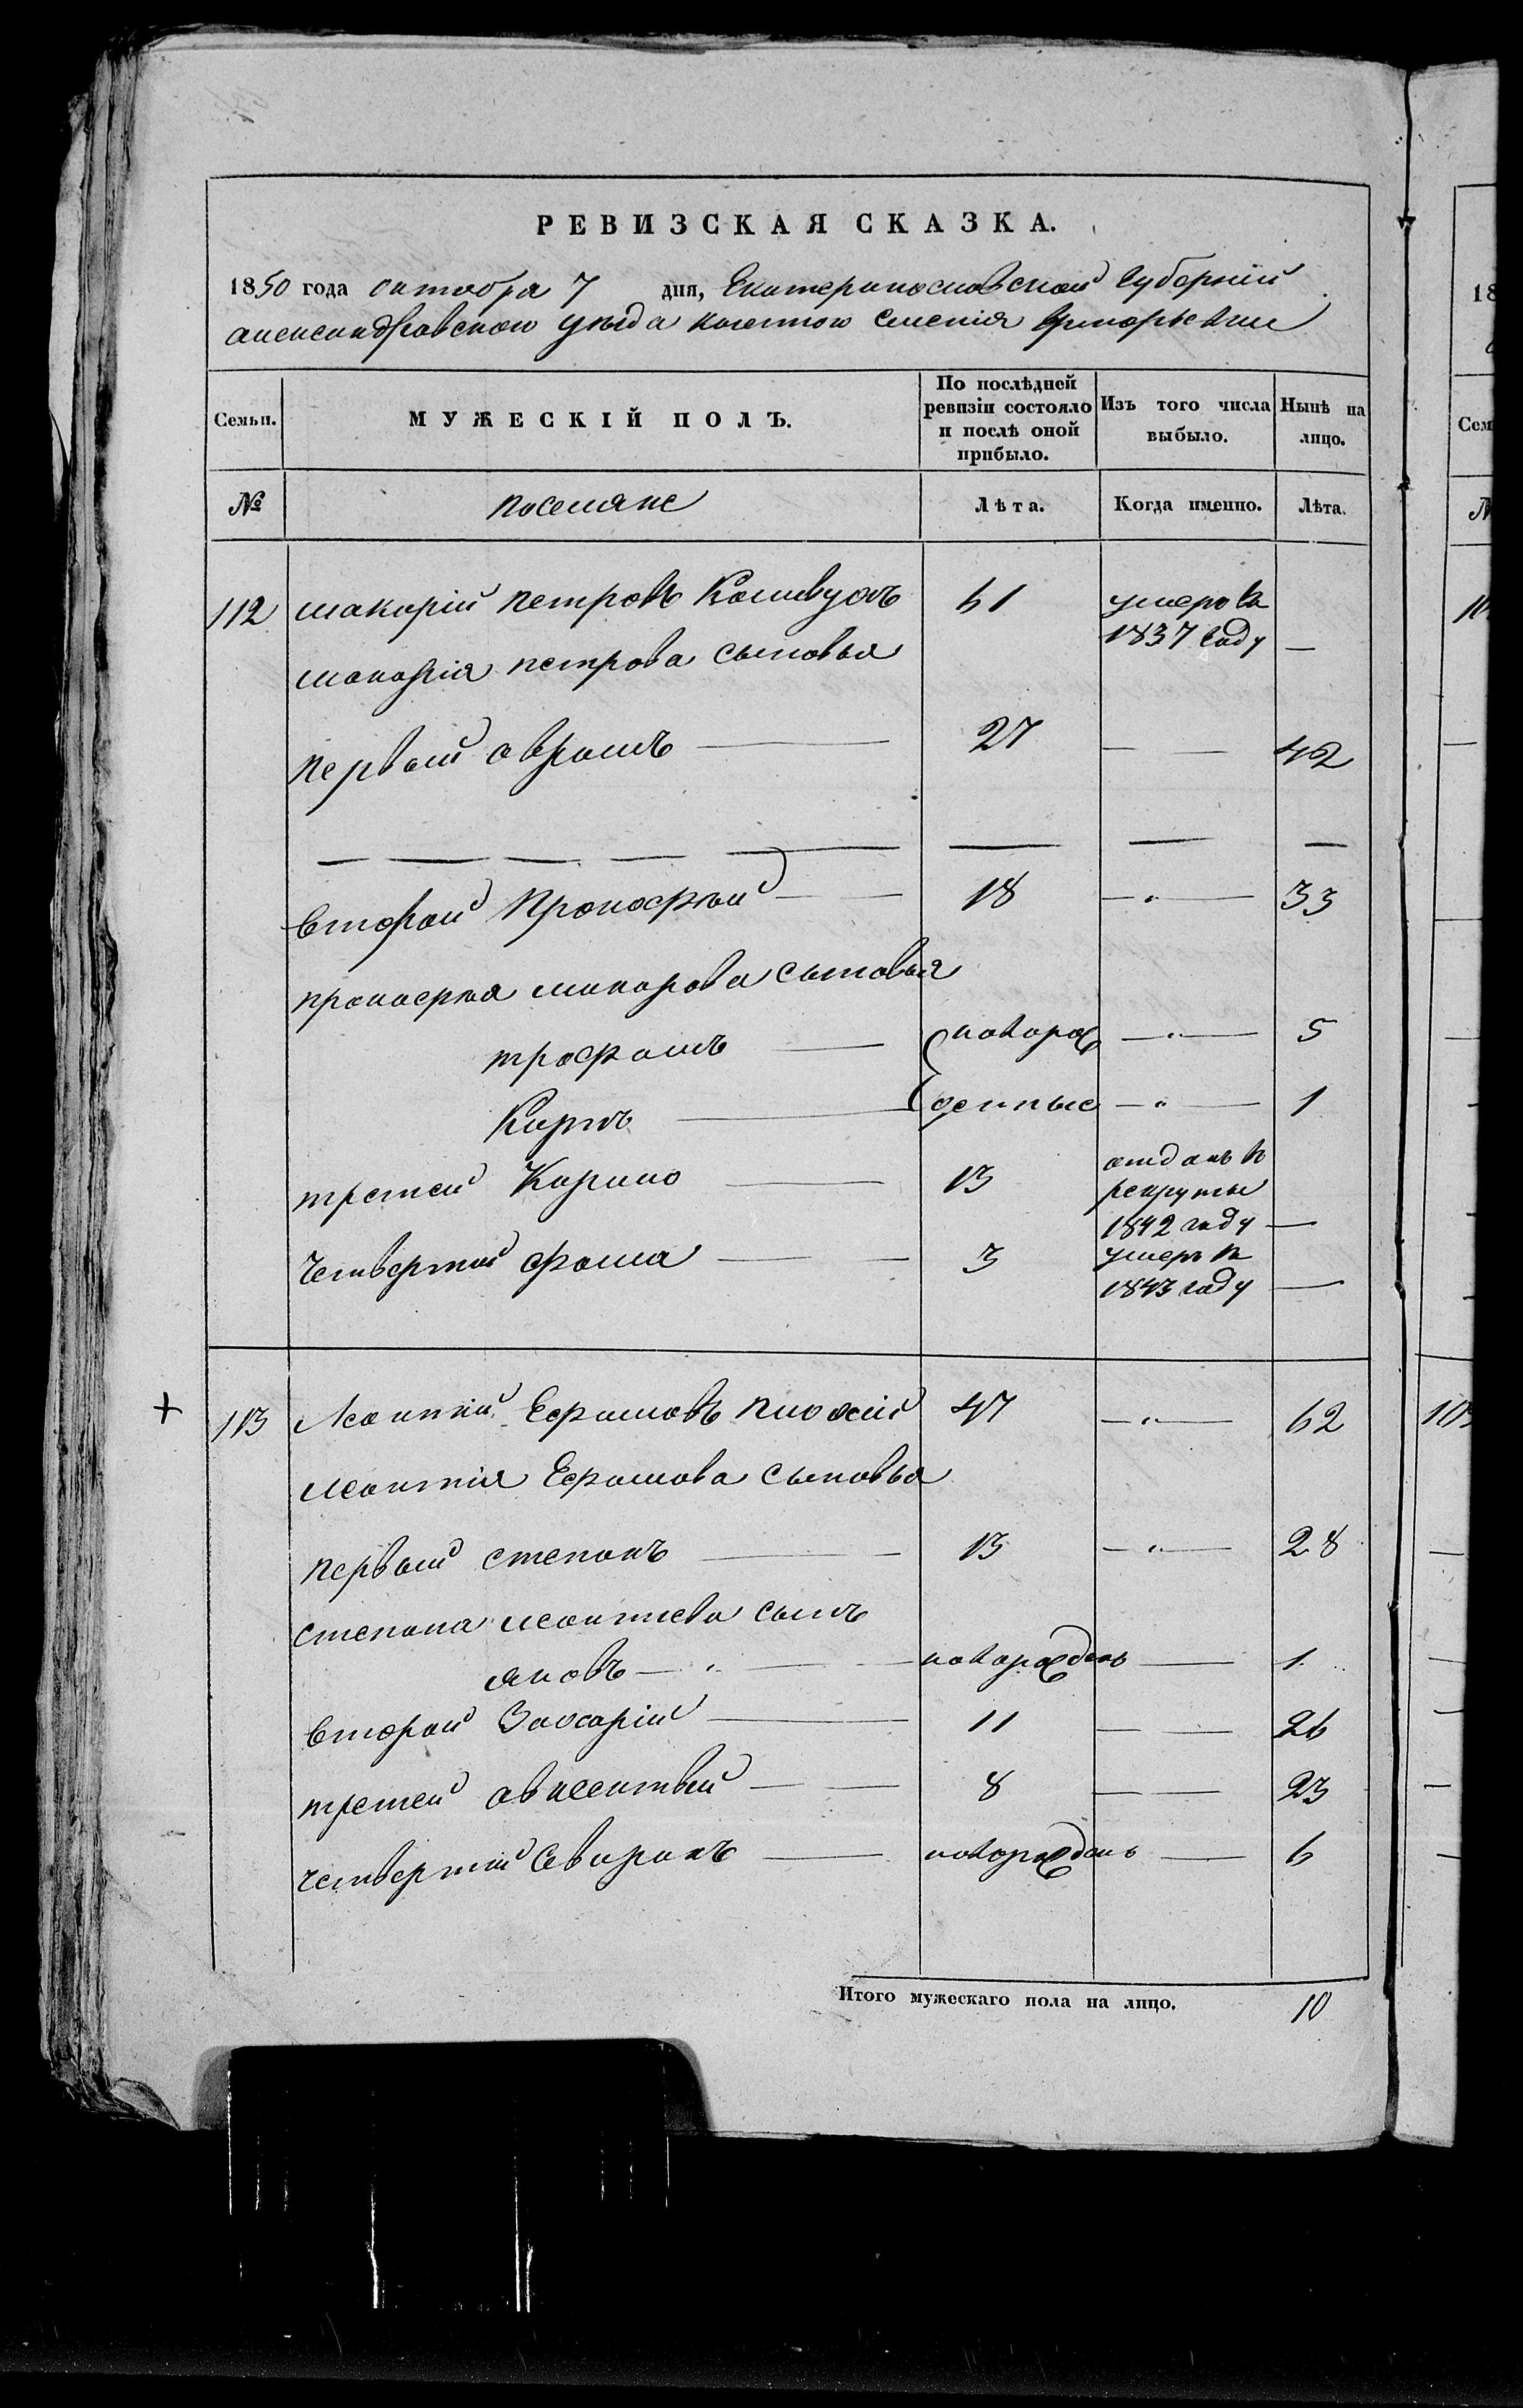 РЕВИЗСКАЯ СКАЗКА.
1850 года октября 7 дня, Екатеринославской Губерніи
александровскаго уезда казеннаго селенія
Семьи. МУЖЕСКІЙ ПОЛЪ. По послѣдней ревизіи состояло и послѣ оной прибыло. Изъ того числа выбыло. Нынѣ на лицо.
№ поселяне Лѣта. Когда именно. Лѣта.
112 макарій петровъ 61 умеръ в
1837 году —
макарія петрова сыновья
первый аврамъ 27 — 42
второй прокофий 18 — 33
прокофия макарова сыновья
трофимъ новорож 5
Карпъ денные 1
третей Кирило 13 отданъ в
рекруты
1842 году —
четвертый фома 3 умеръ в
1843 году —
+ 113 Леонтий Ефимовъ 47 — 62
леонтія Ефимова сыновья
первый степанъ 13 — 28
степана леонтиева сынъ
яковъ новорожденъ 1
второй Захарій 11 — 26
третей авксентий 8 — 23
четвертий Свиридъ новорожденъ 6
Итого мужескаго пола на лицо. 10
18
Сем
№